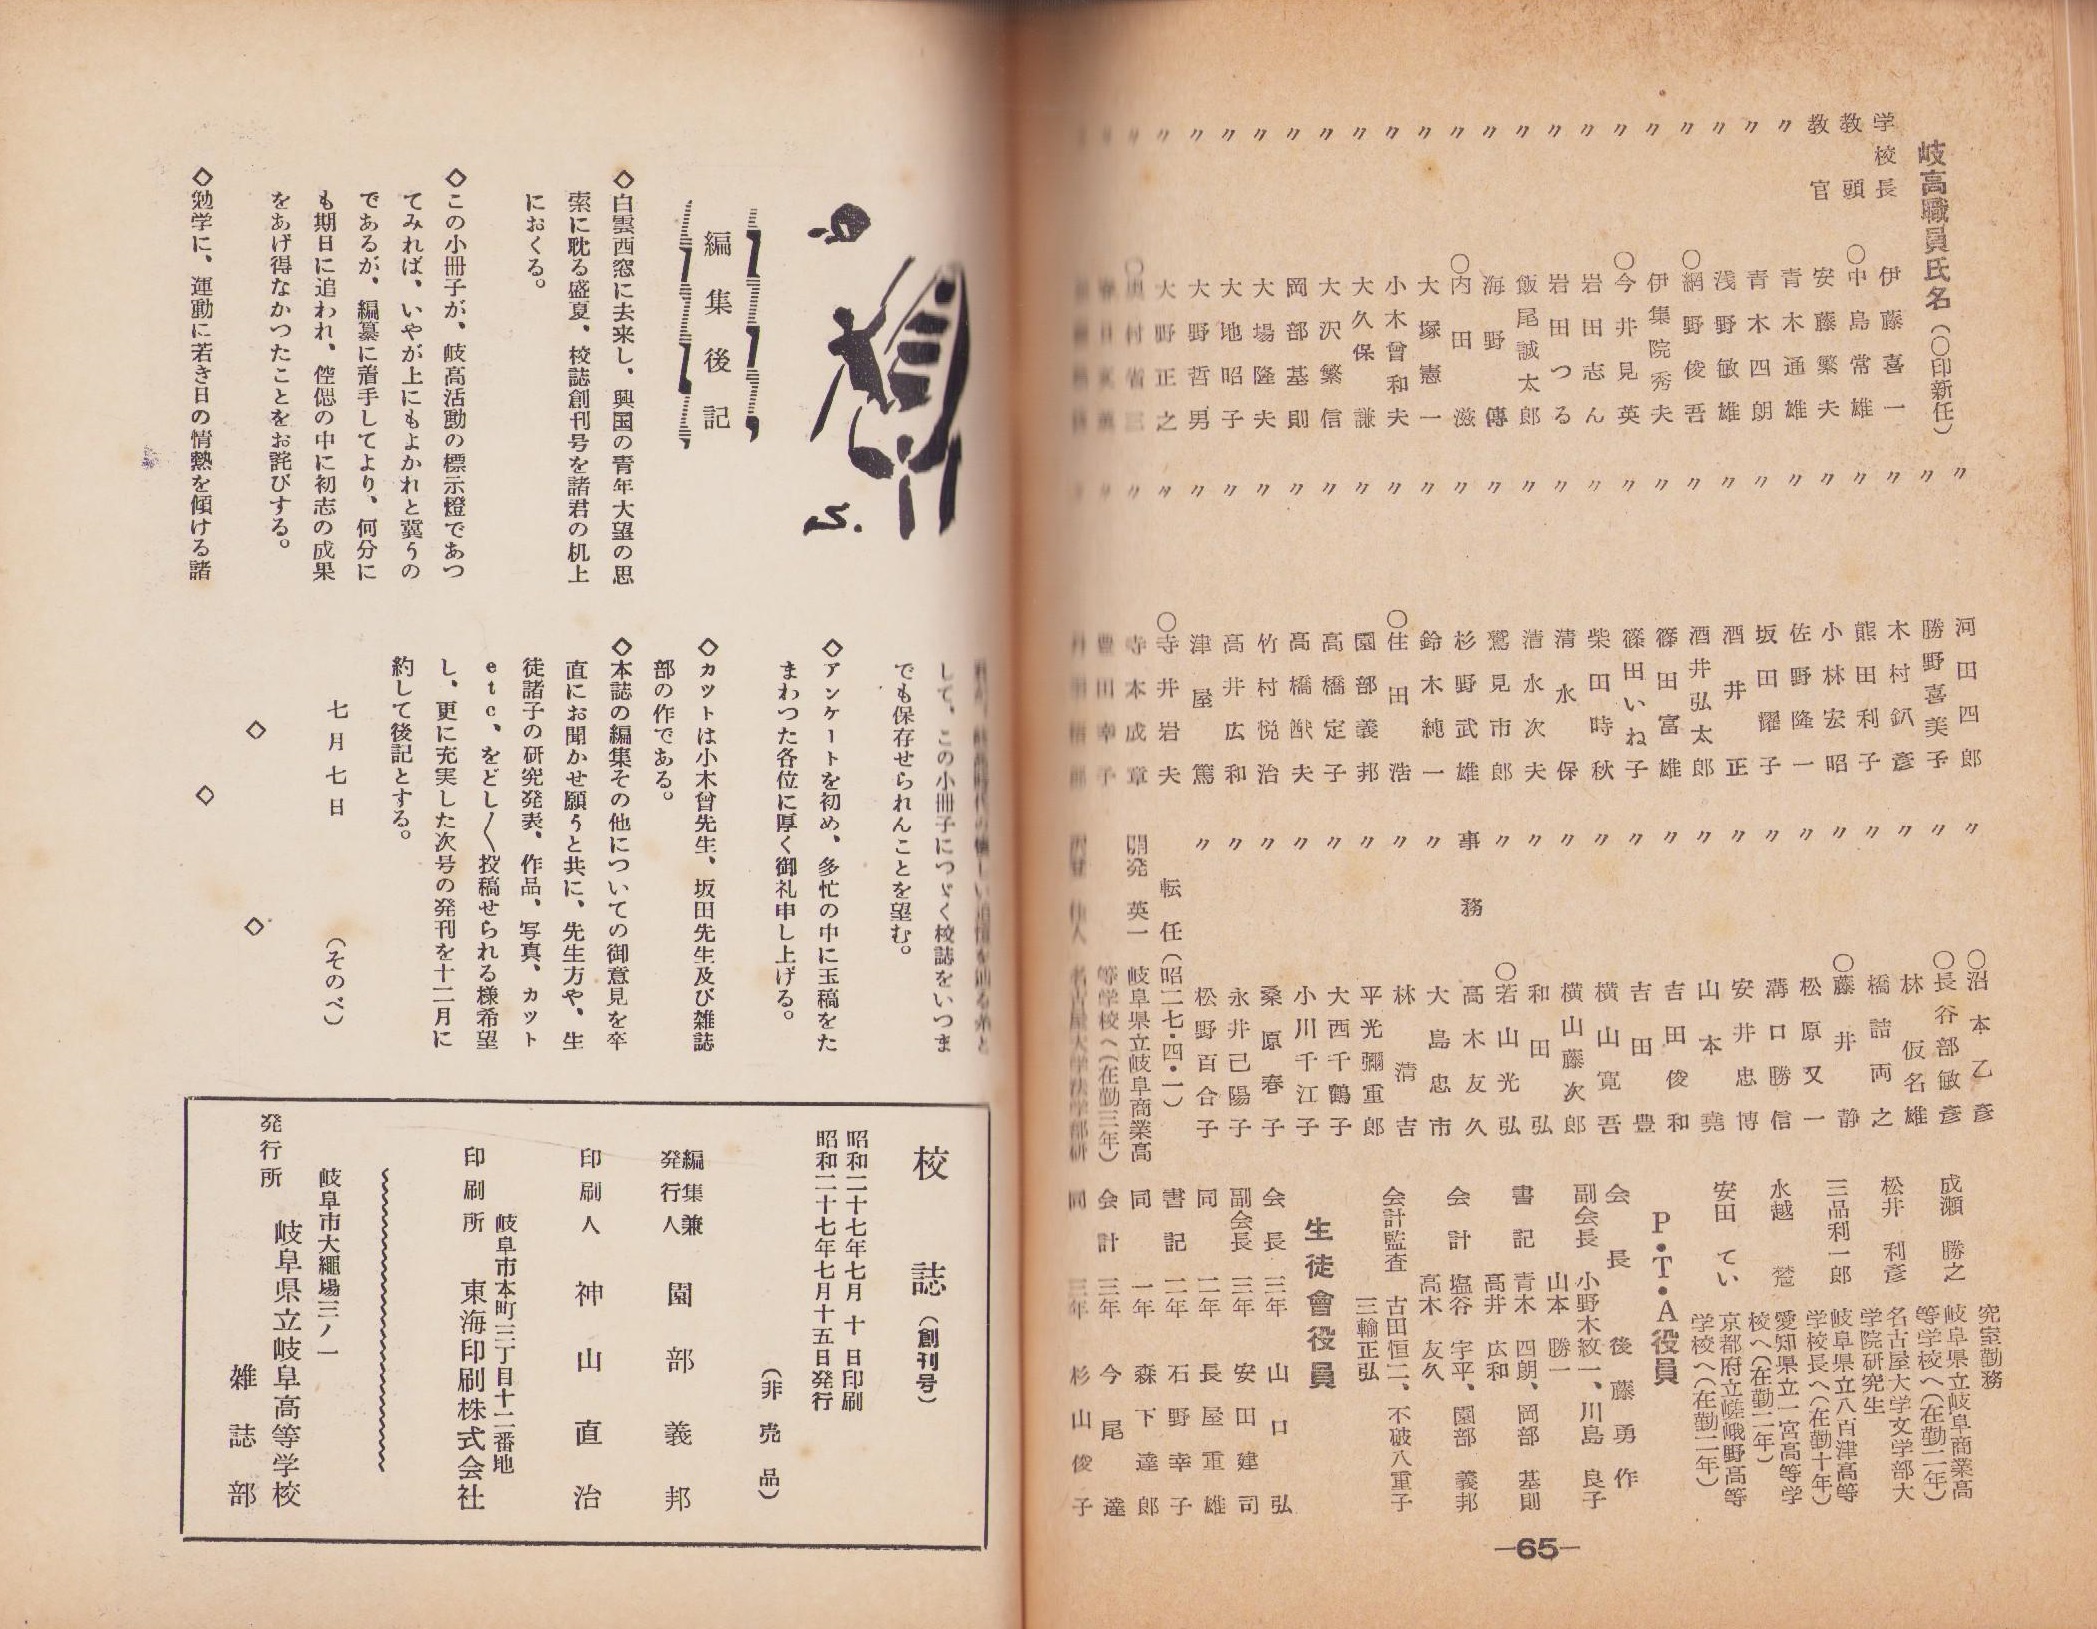 岐高職員氏名（〇印新任）
学校長　伊藤喜一
教頭　〇中島常雄
教官　安藤繁夫
〃　青木通雄
〃　青木四朗
〃　浅野敏雄
〃　〇網野俊吾
〃　伊集院秀夫
〃　〇今井見英
〃　岩田志ん
〃　岩田つる
〃　飯尾誠太郎
〃　海野傳
〃　〇内田滋
〃　大塚憲一
〃　小木曾和夫
〃　大久保謙
〃　大沢繁信
〃　岡部基則
〃　大場隆夫
〃　大地昭子
〃　大野哲男
〃　大野正之
〃　河田四郎
〃　勝野喜美子
〃　木村釟彦
〃　熊田利子
〃　小林宏昭
〃　佐野隆一
〃　坂田耀子
〃　酒井正
〃　酒井弘太郎
〃　篠田富雄
〃　篠田いね子
〃　柴田時秋
〃　清水保
〃　清水次夫
〃　鷲見市郎
〃　杉野武雄
〃　鈴木純一
〃　〇住田浩
〃　園部義邦
〃　高橋定子
〃　高橋猷夫
〃　竹村悦治
〃　高井広和
〃　津屋篤
〃　〇寺井岩夫
〃　寺本成章
〃　豊田幸子
〃　〇沼本乙彦
〃　〇長谷部敏彦
〃　林仮名雄
〃　橋詰両之
〃　〇藤井静
〃　松原又一
〃　溝口勝信
〃　安井忠博
〃　山本堯
〃　吉田俊和
〃　吉田豊
〃　横山寛吾
〃　横山藤次郎
〃　和田弘
〃　〇若山光弘
事務　高木友久
〃　大島忠市
〃　林清吉
〃　平光彌重郎
〃　大西千鶴子
〃　小川千江子
〃　桑原春子
〃　永井己陽子
〃　松野百合子
転任（昭二七・四・一）
開発英一　岐阜県立岐阜商業高
等学校へ（在勤三年）
名古屋大学法学部研
究室勤務
成瀬勝之　岐阜県立岐阜商業高
等学校へ（在勤二年）
松井利彦　名古屋大学文学部大
学院研究生
三品利一郎　岐阜県立八百津高等
学校長へ（在勤十年）
水越　愛知県立一宮高等学
校へ（在勤二年）
安田てい　京都府立嵯峨野高等
学校へ（在勤二年）
P・T・A役員
会長　後藤勇作
副会長　小野木紋一、川島良子
山本勝一
書記　青木四朗、岡部基則
高井広和
会計　塩谷宇平、園部義邦
高木友久
会計監査　古田恒二、不破八重子
三輪正弘
生徒會役員
会長　三年　山口弘
副会長　三年　安田建司
同　二年　長屋重雄
書記　二年　石野幸子
同　一年　森下達郎
会計　三年　今尾達
同　三年　杉山俊子
—65—
編集後記
S.
◇白雲西窓に去来し、興国の青年大望の思
索に耽る盛夏、校誌創刊号を諸君の机上
におくる。
◇この小冊子が、岐高活動の標示燈であつ
てみれば、いやが上にもよかれと冀うの
であるが、編纂に着手してより、何分に
も期日に追われ、倥偬の中に初志の成果
をあげ得なかつたことをお詫びする。
◇勉学に、運動に若き日の情熱を傾ける諸
して、この小冊子につゞく校誌をいつま
でも保存せられんことを望む。
◇アンケートを初め、多忙の中に玉稿をた
まわつた各位に厚く御礼申し上げる。
◇カットは小木曾先生、坂田先生及び雑誌
部の作である。
◇本誌の編集その他についての御意見を卒
直にお聞かせ願うと共に、先生方や、生
徒諸子の研究発表、作品、写真、カット
etc、をどし〱投稿せられる様希望
し、更に充実した次号の発刊を十二月に
約して後記とする。
七月七日　（そのべ）
◇　◇　◇
校誌（創刊号）
昭和二十七年七月十日印刷
昭和二十七年七月十五日発行
（非売品）
編集兼
発行人　園部義邦
印刷人　神山直治
岐阜市本町三丁目十二番地
印刷所　東海印刷株式会社
岐阜市大繩場三ノ一
発行所　岐阜県立岐阜高等学校
雑誌部